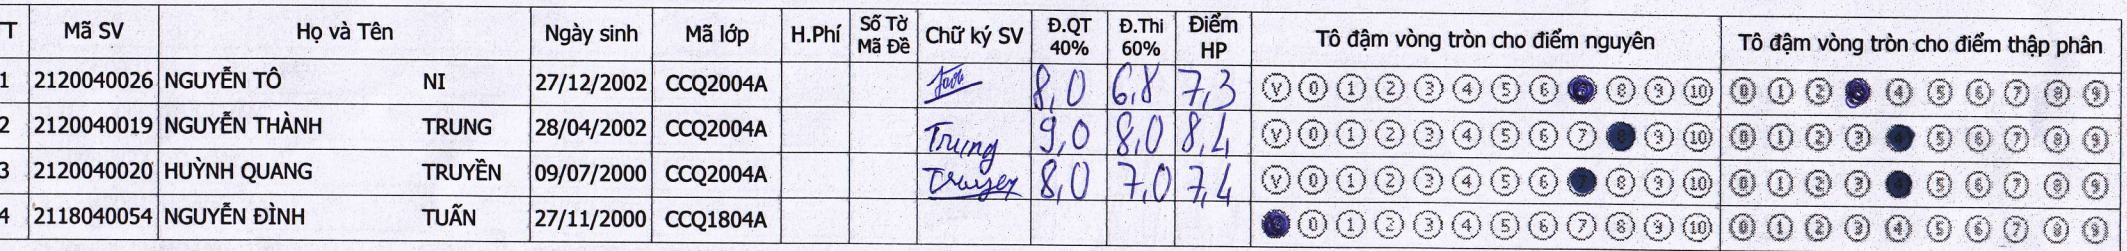 TT Mã SV Họ và Tên Ngày sinh Mã lớp H.Phí Số Tờ Mã Đề Chữ ký SV Đ.QT 40% Đ.Thi 60% Điểm HP Tô đậm vòng tròn cho điểm nguyên Tô đậm vòng tròn cho điểm thập phân
1 2120040026 NGUYỄN TÔ NI 27/12/2002 CCQ2004A 8,0 6,8 7,3 V 0 1 2 3 4 5 6 8 9 10 0 1 2 4 5 6 7 8 9
2 2120040019 NGUYỄN THÀNH TRUNG 28/04/2002 CCQ2004A Trung 9,0 8,0 8,4 V 0 1 2 3 4 5 6 7 8 9 10 0 1 2 3 4 5 6 7 8 9
3 2120040020 HUỲNH QUANG TRUYỀN 09/07/2000 CCQ2004A 8,0 7,0 7,4 V 0 1 2 3 4 5 6 7 8 9 10 0 1 2 3 4 5 6 7 8 9
4 2118040054 NGUYỄN ĐÌNH TUẤN 27/11/2000 CCQ1804A 0 1 2 3 4 5 6 7 8 9 10 0 1 2 3 4 5 6 7 8 9